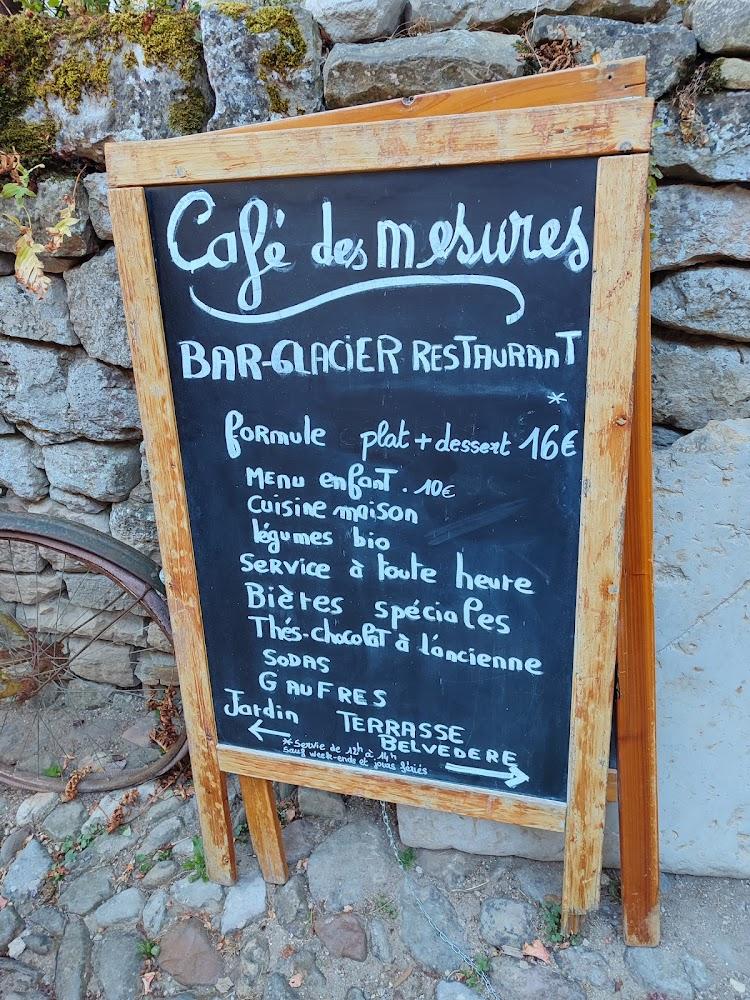 Café des mesures
BAR-GLACIER RESTAURANT
*
formule plat + dessert 16€
MENU enfant . 10€
Cuisine maison
légumes bio
Service à toute heure
Bières spéciales
Thés-chocolat à l'ancienne
SODAS
GAUFRES
Jardin TERRASSE
← BELVEDERE →
* Servie de 12h à 14h
Sauf week-ends et jours fériés